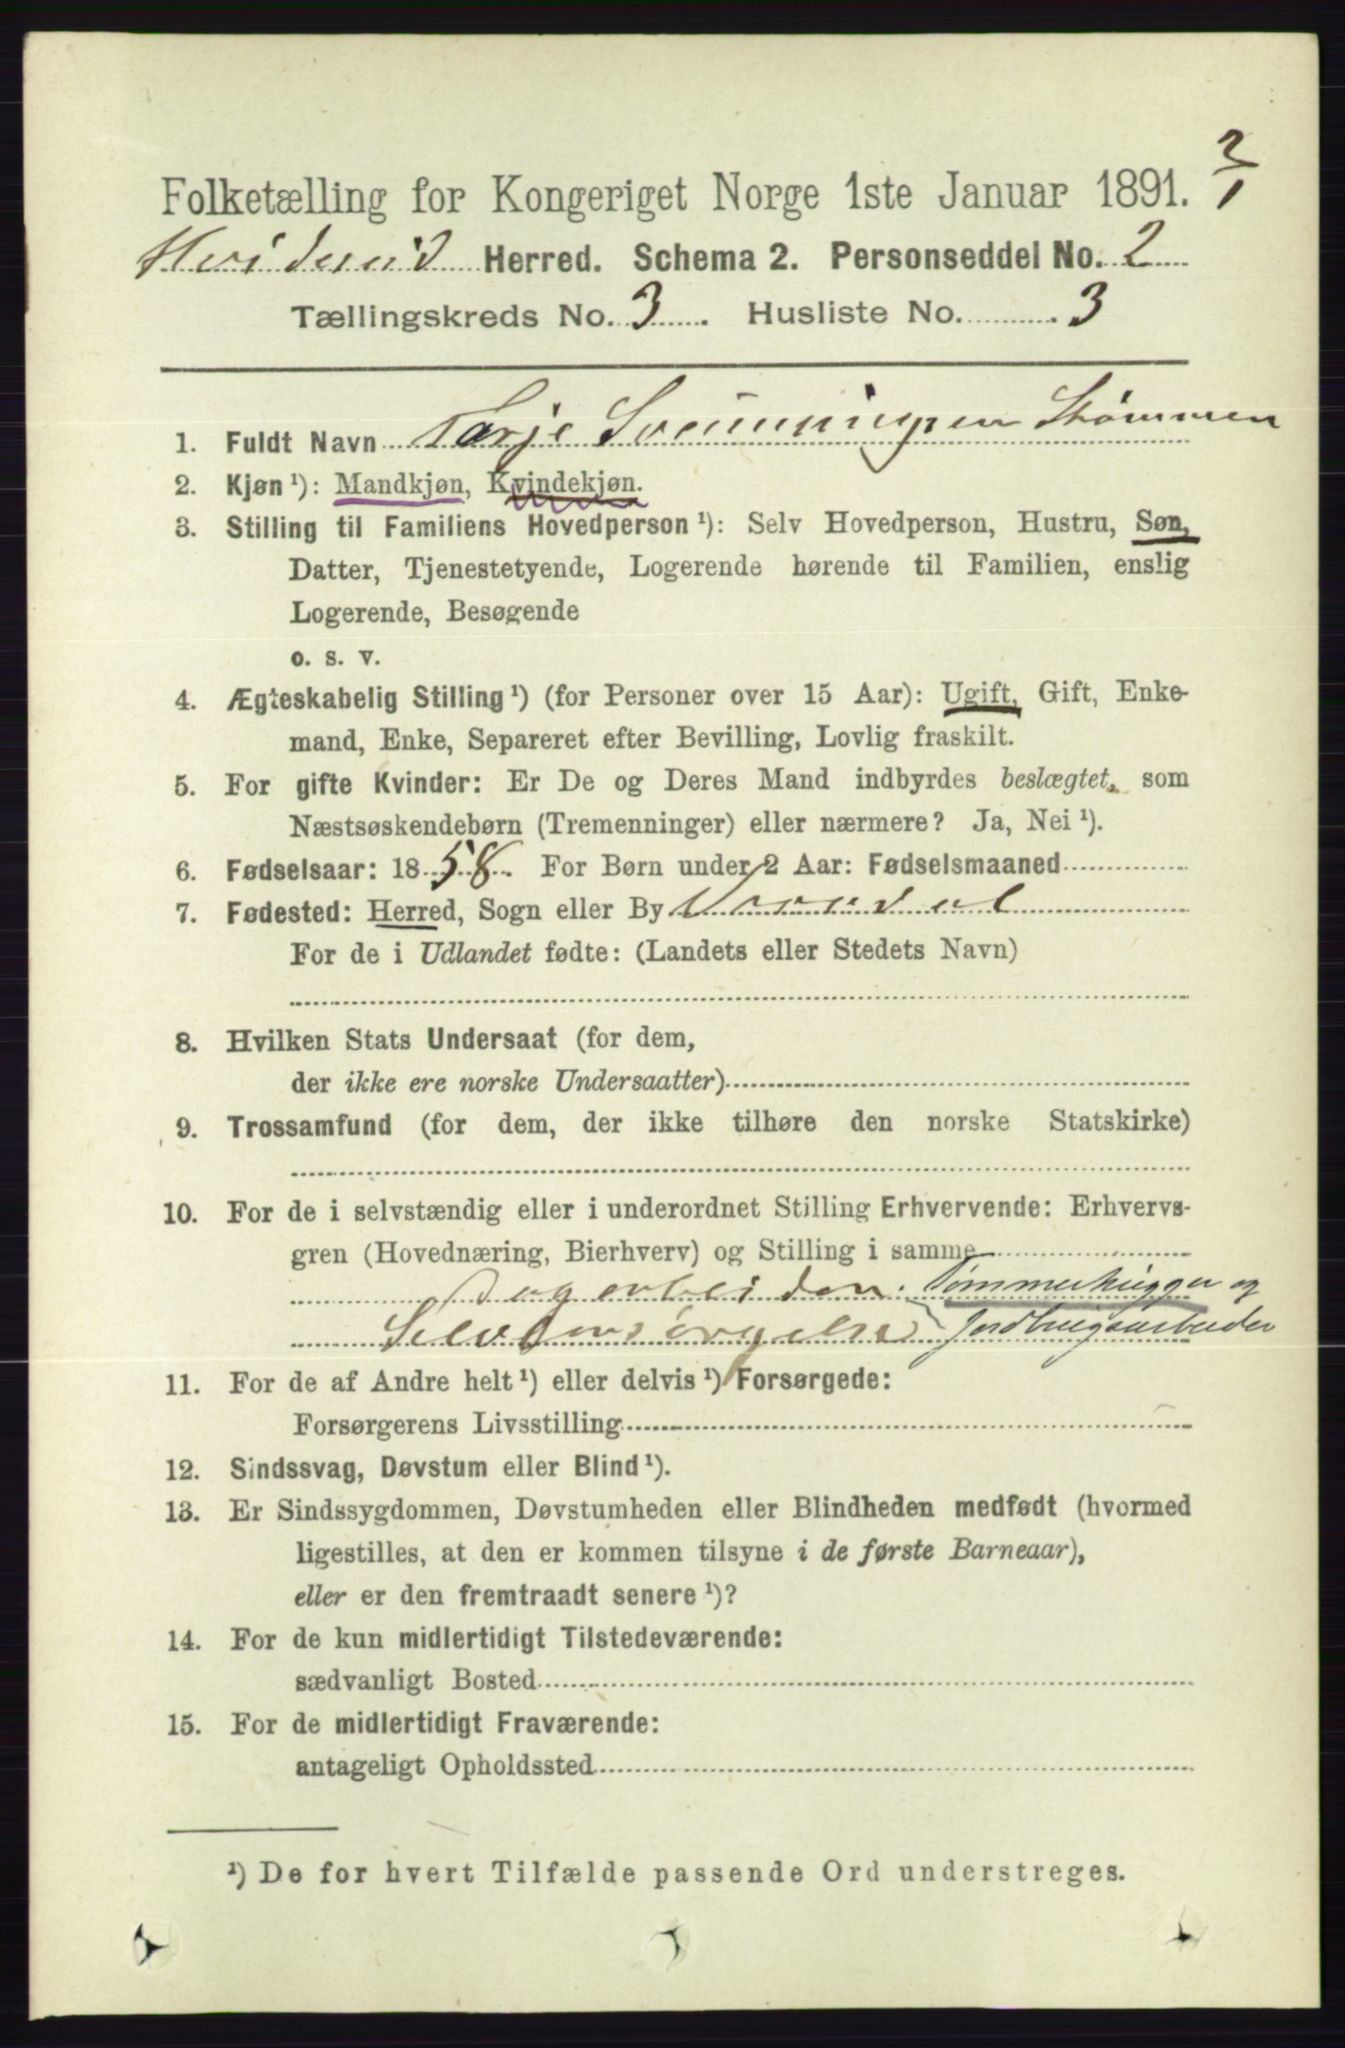 Folketælling for Kongeriget Norge 1ste Januar 1891.
3/1
Hvideseid Herred. Schema 2. Personseddel No. 2
Tællingskreds No. 3. Husliste No. 3
1. Fuldt Navn Tarje Sveinungsen Strømmen
2. Kjøn ¹): Mandkjøn, Kvindekjøn.
3. Stilling til Familiens Hovedperson ¹): Selv Hovedperson, Hustru, Søn,
Datter, Tjenestetyende, Logerende hørende til Familien, enslig
Logerende, Besøgende
o. s. v.
4. Ægteskabelig Stilling ¹) (for Personer over 15 Aar): Ugift, Gift, Enke-
mand, Enke, Separeret efter Bevilling, Lovlig fraskilt.
5. For gifte Kvinder: Er De og Deres Mand indbyrdes beslægtet, som
Næstsøskendebørn (Tremenninger) eller nærmere? Ja, Nei ¹).
6. Fødselsaar: 1858. For Børn under 2 Aar: Fødselsmaaned
7. Fødested: Herred, Sogn eller By
For de i Udlandet fødte: (Landets eller Stedets Navn)
8. Hvilken Stats Undersaat (for dem,
der ikke ere norske Undersaatter)
9. Trossamfund (for dem, der ikke tilhøre den norske Statskirke)
10. For de i selvstændig eller i underordnet Stilling Erhvervende: Erhvervs-
gren (Hovednæring, Bierhverv) og Stilling i samme
Dagarbeider. Tømmerhugger og
Selvforsørgelse Jordbrugsarbeider
11. For de af Andre helt ¹) eller delvis ¹) Forsørgede:
Forsørgerens Livsstilling
12. Sindssvag, Døvstum eller Blind ¹).
13. Er Sindssygdommen, Døvstumheden eller Blindheden medfødt (hvormed
ligestilles, at den er kommen tilsyne i de første Barneaar),
eller er den fremtraadt senere ¹)?
14. For de kun midlertidigt Tilstedeværende:
sædvanligt Bosted
15. For de midlertidigt Fraværende:
antageligt Opholdssted
¹) De for hvert Tilfælde passende Ord understreges.